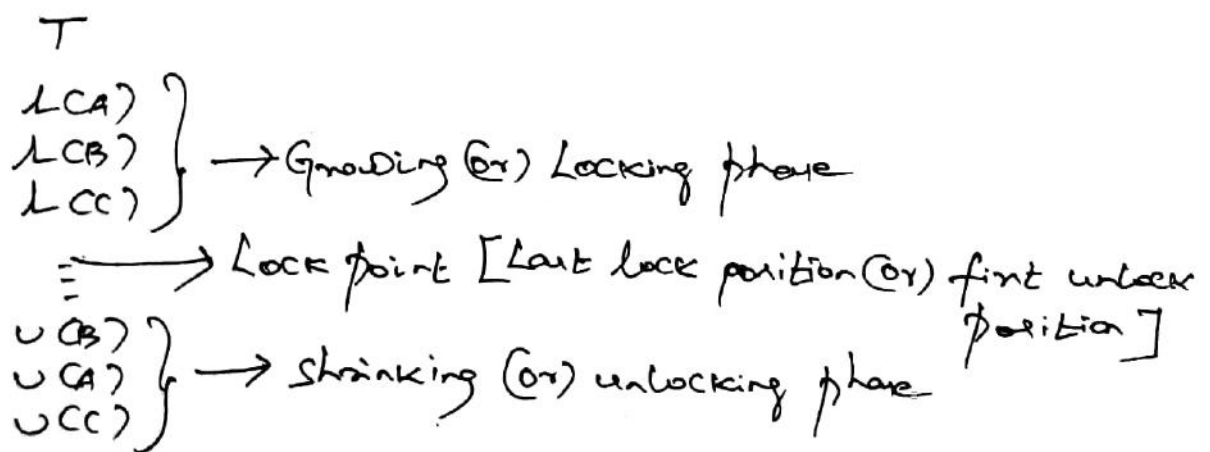 T
L(A)
L(B)
L(C)
→ Growing (or) Locking phase
→ Lock point [Last lock position (or) first unlock position]
U(B)
U(A)
U(C)
→ Shrinking (or) unlocking phase